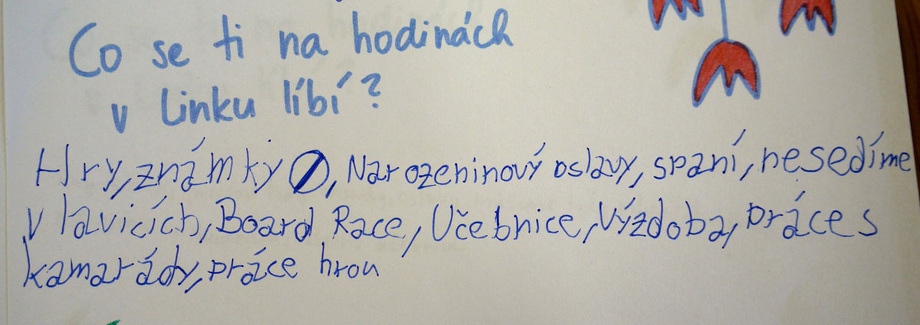 Co se ti na hodinách
v Linku líbí?
Hry, známky, Narozeninový oslavy, spaní, nesedíme
v lavicích, Board Race, Učebnice, Výzdoba, práce s
kamarády, práce hrou